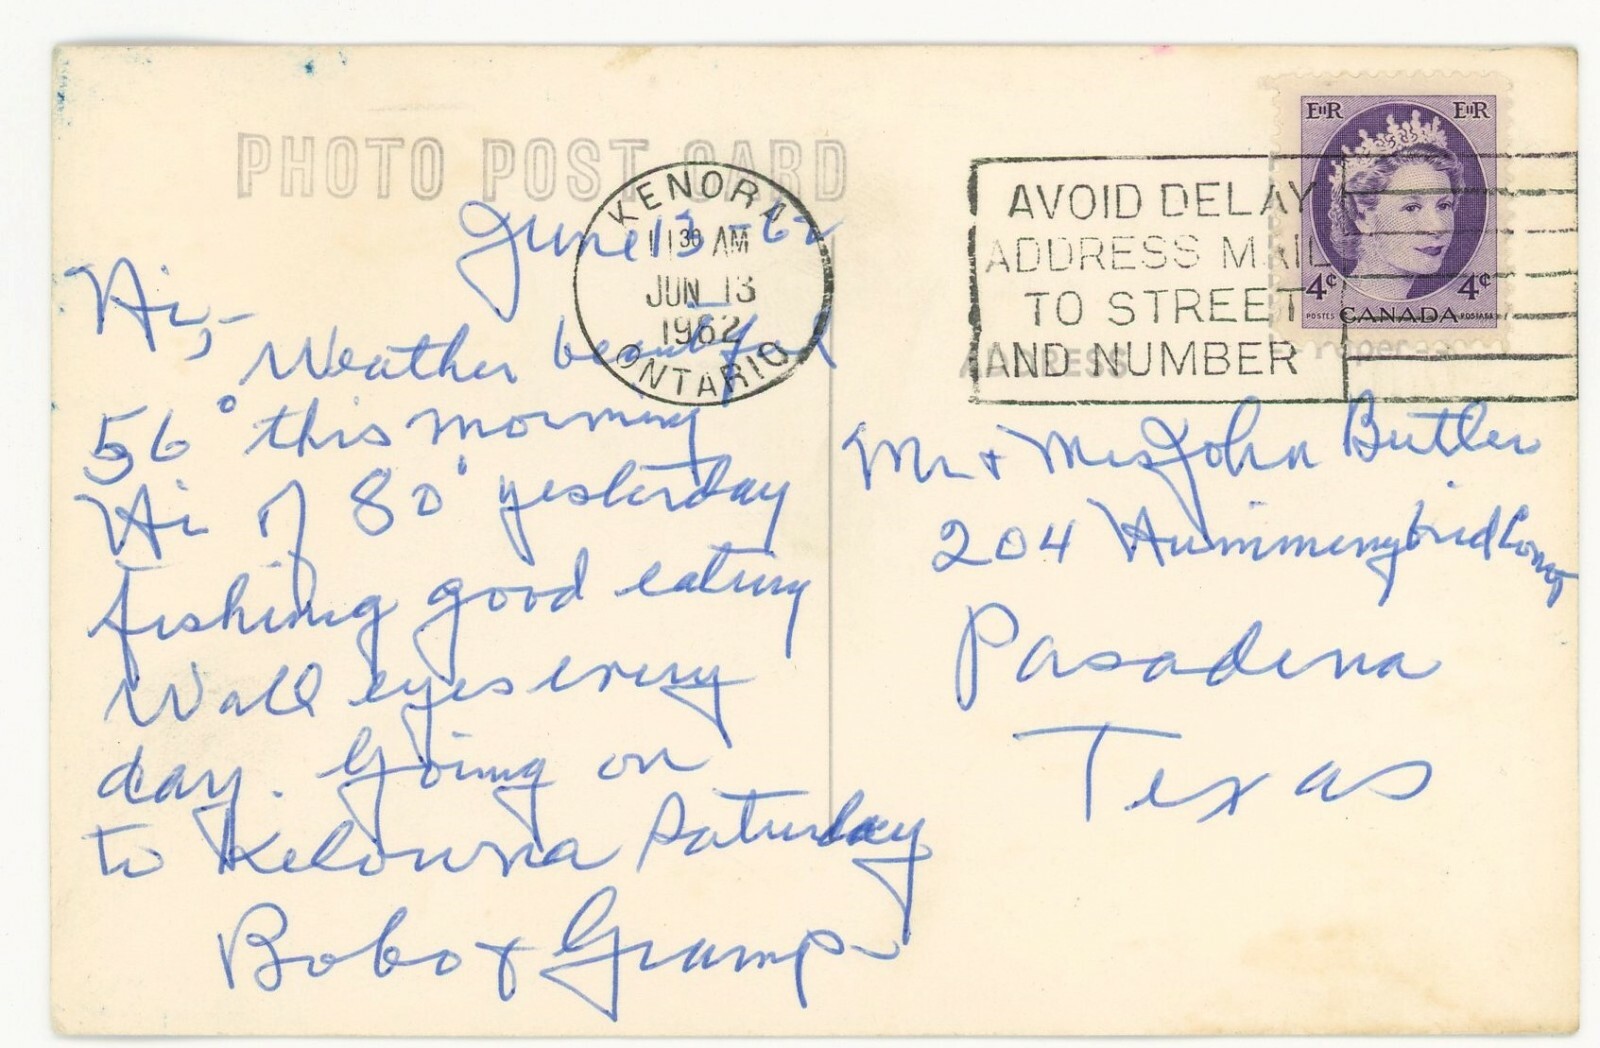 PHOTO POST CARD
KENORA
11 30 AM
JUN 13
1962
ONTARIO
AVOID DELAY
ADDRESS MAIL
TO STREET
AND NUMBER
EIIR EIIR
4¢ 4¢
POSTES CANADA POSTAGE
ADDRESS
June 13 - 62
Hi,-
Weather beautiful
56° this morning
Hi of 80° yesterday
fishing good eating
Wall eyes every
day. Going on
to Kelowna Saturday
Bobo & Gramp
Mr + Mrs John Butler
204 Hummingbird
Pasadena
Texas